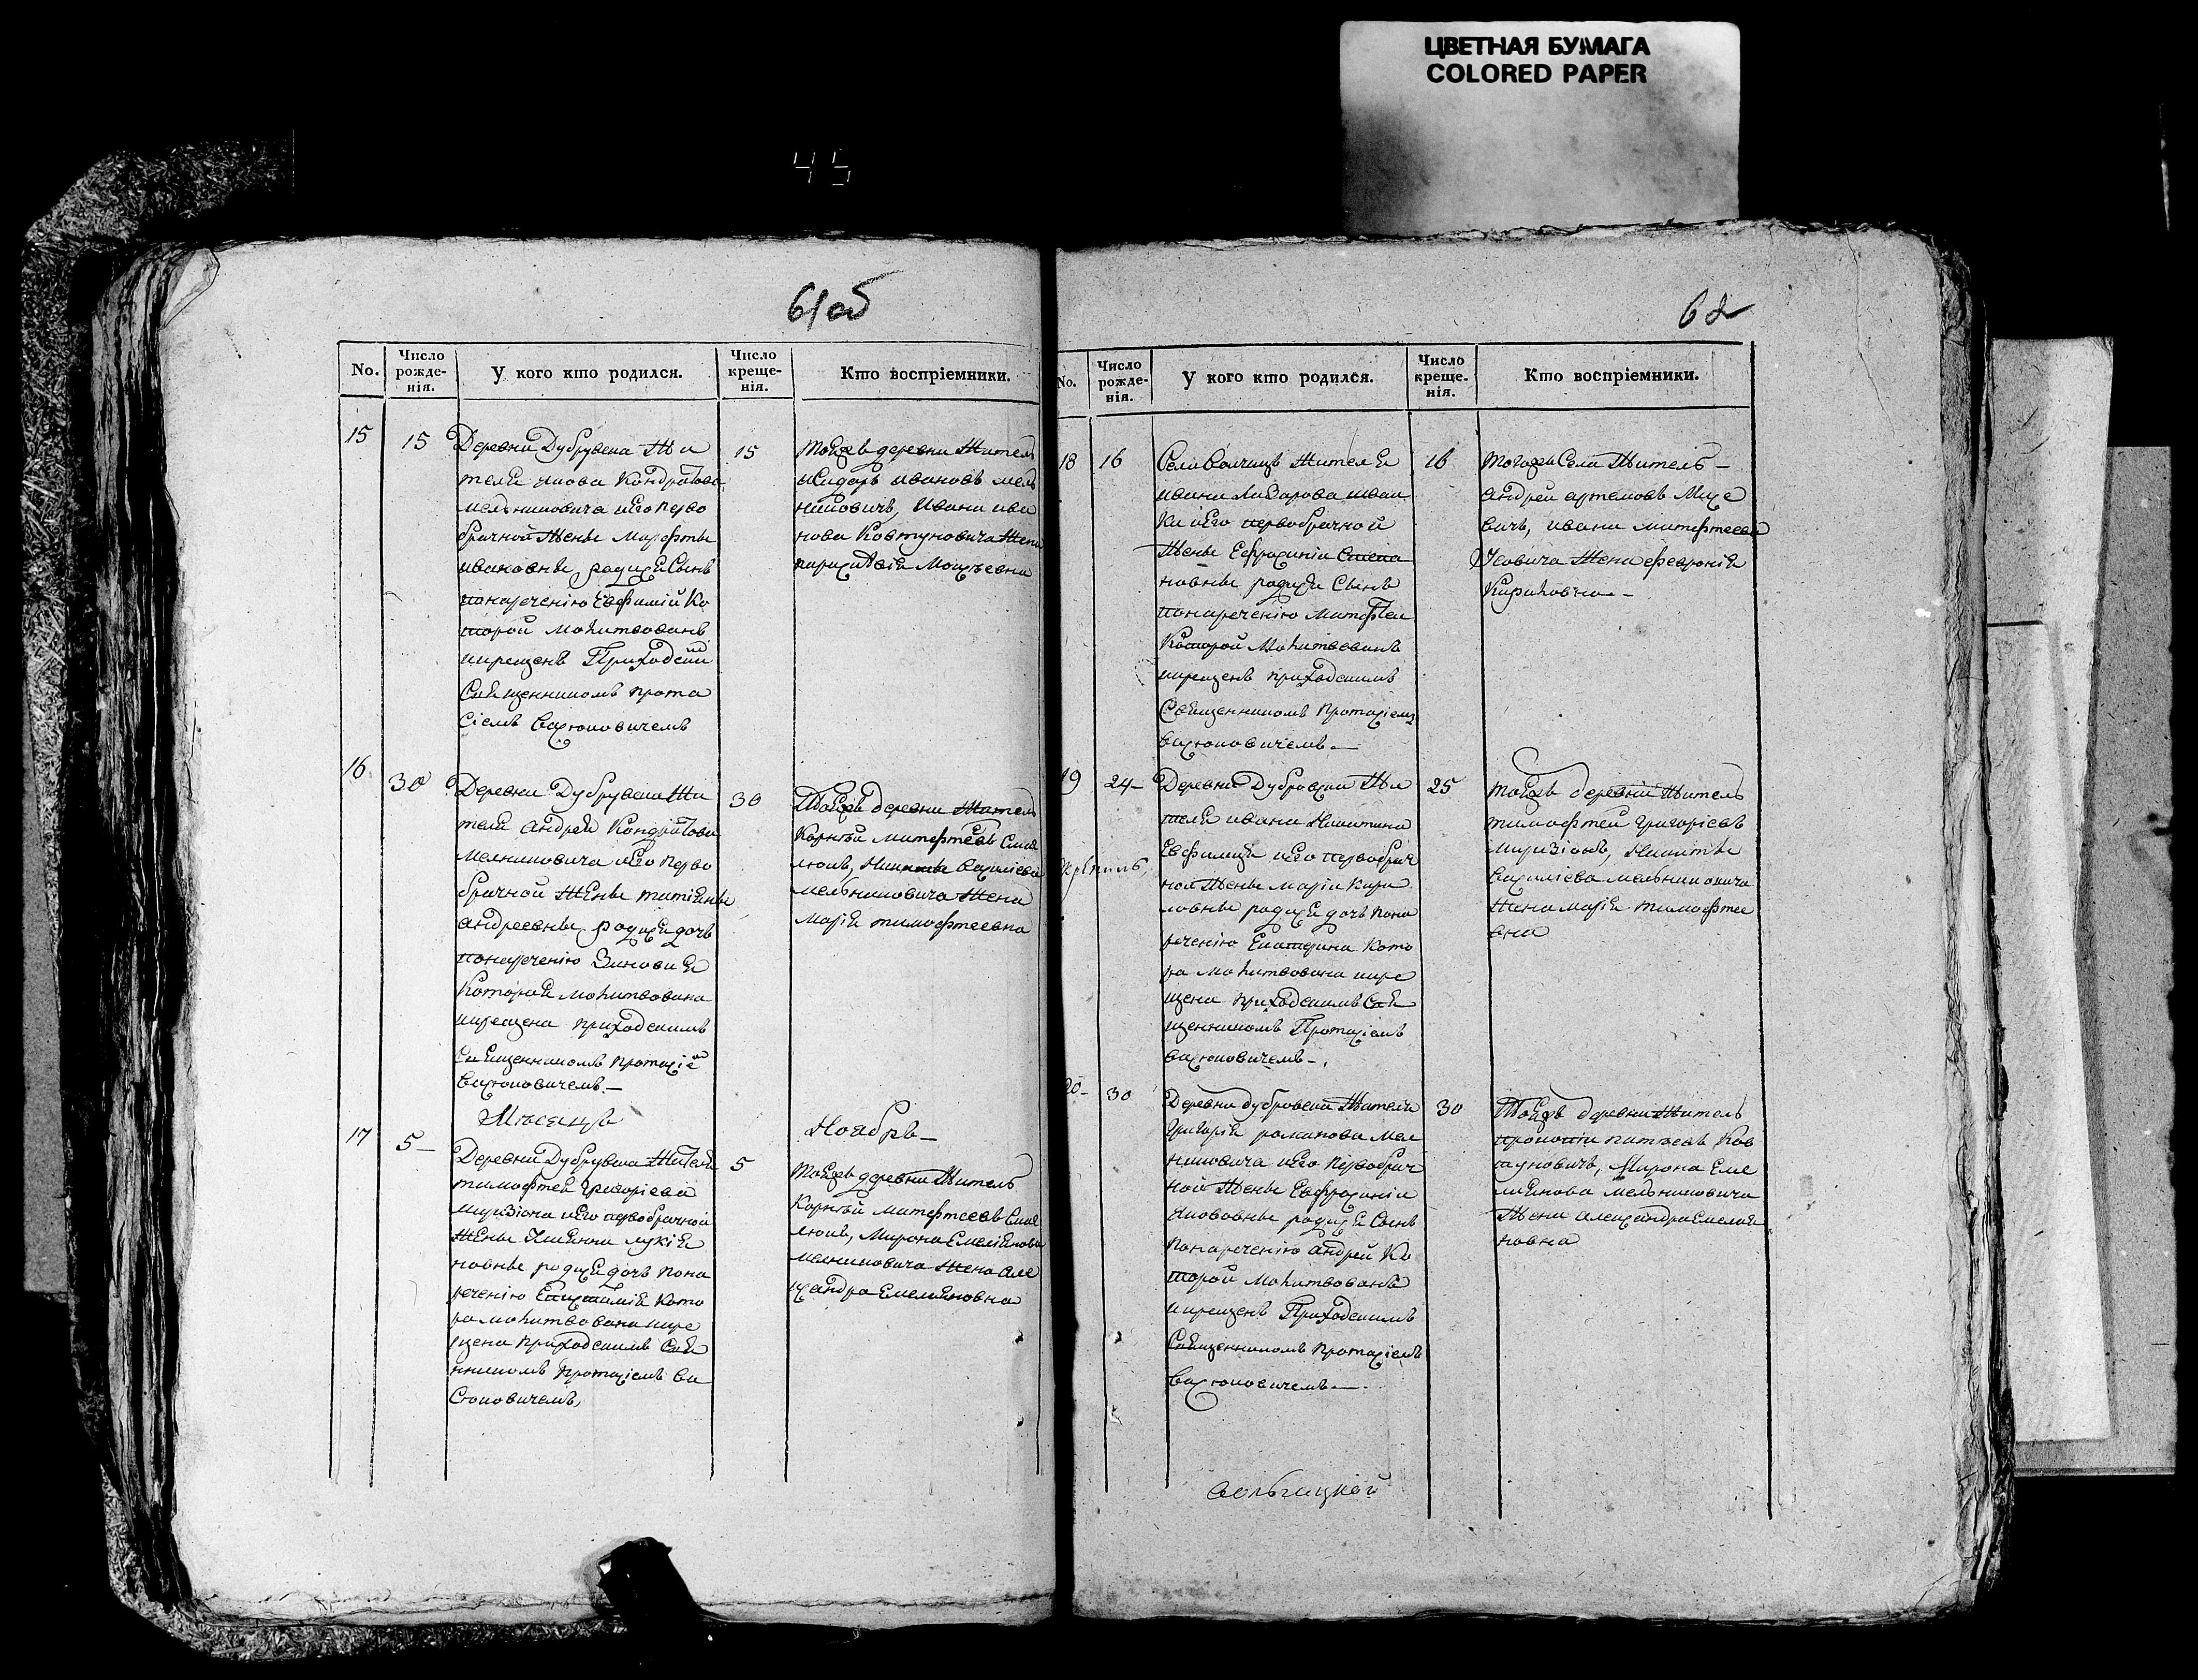 ЦВЕТНАЯ БУМАГА
COLORED PAPER
45
61об
No.
Число рожде-нія.
У кого кто родился.
Число креще-нія.
Кто воспріемники.
15
15
Деревни Дубрувска Жи
теля Якова Кондратова
мельниковича иего перво
брачной Жены Марфты
ивановны, родися Сынъ
понареченію Евфимій Ко
торой молитвованъ
икрещенъ Приходским
Священникомъ прота
сіемъ Васюковичемъ
15
тоеяжъ деревни Житель
исидоръ ивановъ мель
никовичь, Ивана ива
нова Ковтуновича Жена
параскевія Моисъевна
16
30
Деревни Дубрувска Жи
теля андрея Кондратова
Мелниковича иего перво
брачной Жены татіяны
андреевны, родися дочь
понареченію Зиновия
Которая молитвована
икрещена приходскимъ
Священникомъ протасіе
Васюковичемъ. —
30
Тоеяжъ деревни Житель
Корнъй матфтеевъ
люкъ, Никиты василіева
мельниковича Жена
Марія тимофтеевна
Мѣсяцъ
Ноябрь —
17
5 —
Деревни Дубрувска Жителя
тимофтея Григоріева
миризіона иего первобрачной
Жены лукія
новны родися дочь пона
реченію Кото
ра молитвована икре
щена приходскимъ Свя
нникомъ протасіемъ Ва
Сюковичемъ,
5
тоеяжъ деревни Житель
Корнъй матфтеевъ
люкъ, Мирона Емеліянова
мелниковича Жена Але
ксандра Емельяновна
62
No.
Число рожде-нія.
У кого кто родился.
Число креще-нія.
Кто воспріемники.
18
16
Села Волчицъ Жителя
ивана Лазарова
ка иего первобрачной
Жены Ефросиніи Степа
новны родися Сынъ
понареченію Матфтеи
Которой Молитвованъ
икрещенъ приходскимъ
Священникомъ протасіемъ
Васюковичемъ. —
16
тогожъ Села Житель —
андрей артемовъ Мисе
вичь, ивана матфтеева
Усовича Жена феврония
Кириловна. —
19
24 —
Деревни Дубровски Жи
теля ивана Никитина
иего первобрач
ной Жены Маріи Кири
ловны родися дочь пона
реченію Екатерина Кото
ра Молитвована икре
щена приходскимъ Свя
щенникомъ Протасіемъ
васюковичемъ —.
25
тоеяжъ деревни Житель
тимофтей григоріевъ
миризіонъ, Никиты
василіева мельниковича
Жена марія тимофтее
вна
20 —
30
Деревни дубровска Жителя
Григорія романова Мел
никовича иего первобрач
ной Жены Евфросиніи
Якововны родися Сынъ
понареченію андрей Ко
торой Молитвованъ
икрещенъ Приходскимъ
Священникомъ протасіемъ
Васюковичемъ —.
30
Тоеяжъ деревни Житель
прокопій Ков
туновичь, Мирона Еме
лиянова мельниковича
Жена александра Емелия
новна